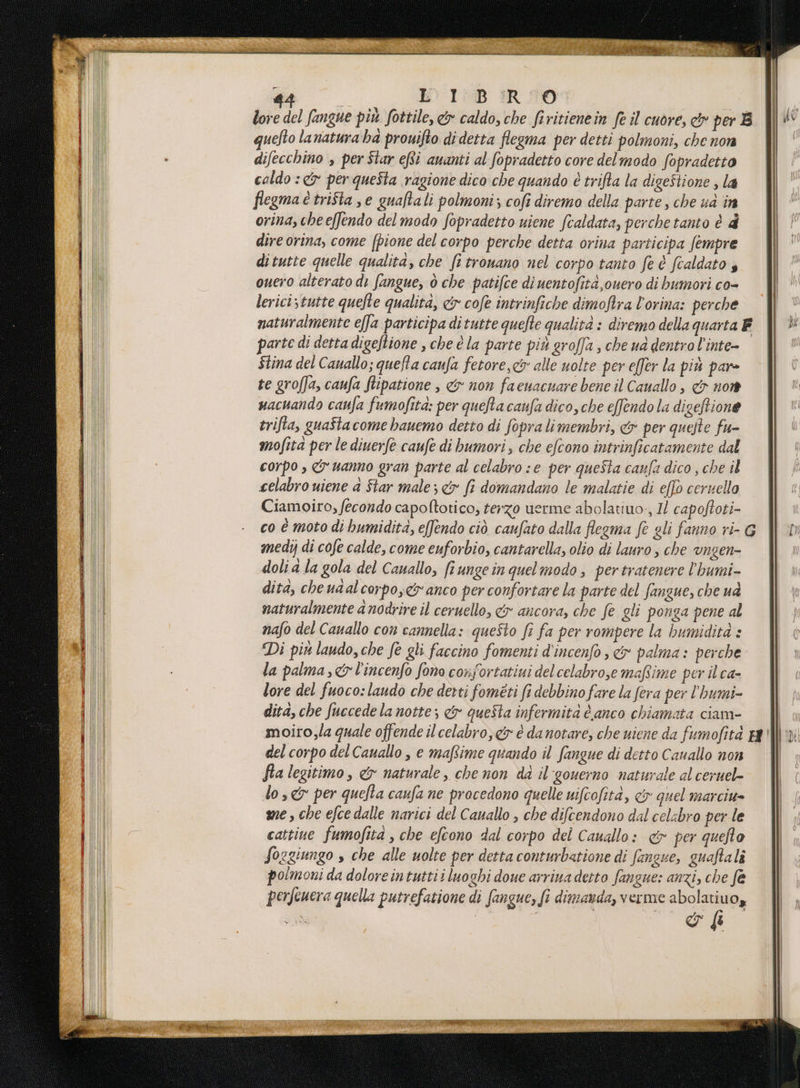 44 LIBRO
lore del ſangue più ſottile, & caldo, che ſi ritiene in ſe il cuore, & per B
queſto la natura hà prouiſto di detta flegma per detti polmoni, che non
diſecchino, per ſtar eßi auanti al ſopradetto core del modo ſopradetto
caldo: & per queſta ragione dico che quando è triſta la digeſtione, la
flegma è triſta, e guaſta li polmoni; coſi diremo della parte, che uà in
orina, che eſſendo del modo ſopradetto uiene ſcaldata, perche tanto è à
dire orina, come ſpione del corpo perche detta orina participa ſempre
di tutte quelle qualità, che ſi trouano nel corpo tanto ſe è ſcaldato,
ouero alterato di ſangue, ò che patiſce di uentoſità, ouero di humori co-
lerici; tutte queſte qualità, & coſe intrinſiche dimoſtra l'orina: perche
naturalmente eſſa participa di tutte queſte qualità: diremo della quarta F
parte di detta digeſtione, che è la parte più groſſa, che uà dentro l'inte-
ſtina del Cauallo; queſta cauſa fetore, & alle uolte per eſſer la più par-
te groſſa, cauſa ſtipatione, & non fa euacuare bene il Cauallo, & non
uacuando cauſa fumoſità: per queſta cauſa dico, che eſſendo la digeſtione
triſta, guaſta come hauemo detto di ſopra li membri, & per queſte fu-
moſità per le diuerſe cauſe di humori, che eſcono intrinſicatamente dal
corpo, & uanno gran parte al celabro: e per queſta cauſa dico, che il
celabro uiene à ſtar male; & ſi domandano le malatie di eſſo ceruello
Ciamoiro, ſecondo capoſtotico, terzo uerme abolatiuo, Il capoſtoti-
co è moto di humidità, eſſendo ciò cauſato dalla flegma ſe gli fanno ri- G
medij di coſe calde, come euforbio, cantarella, olio di lauro, che vngen-
doli à la gola del Cauallo, ſi unge in quel modo, per tratenere l'humi-
dità, che uà al corpo, & anco per confortare la parte del ſangue, che uà
naturalmente à nodrire il ceruello, & ancora, che ſe gli ponga pene al
naſo del Cauallo con cannella: queſto ſi fa per rompere la humidità:
Di più laudo, che ſe gli faccino fomenti d'incenſo, & palma: perche
la palma, & l'incenſo ſono confortatiui del celabro, e maßime per il ca-
lore del fuoco: laudo che detti fométi ſi debbino fare la ſera per l'humi-
dità, che ſuccede la notte; & queſta infermità è anco chiamata ciam-
moiro, la quale offende il celabro, & è da notare, che uiene da fumoſità H
del corpo del Cauallo, e maßime quando il ſangue di detto Cauallo non
ſta legitimo, & naturale, che non dà il gouerno naturale al ceruel-
lo, & per queſta cauſa ne procedono quelle uiſcoſità, & quel marciu-
me, che eſce dalle narici del Cauallo, che diſcendono dal celabro per le
cattiue fumoſità, che eſcono dal corpo del Cauallo: & per queſto
ſoggiungo, che alle uolte per detta conturbatione di ſangue, guaſta li
polmoni da dolore in tutti i luoghi doue arriua detto ſangue: anzi, che ſe
perſeuera quella putrefatione di ſangue, ſi dimanda, verme abolatiuo,
& ſi